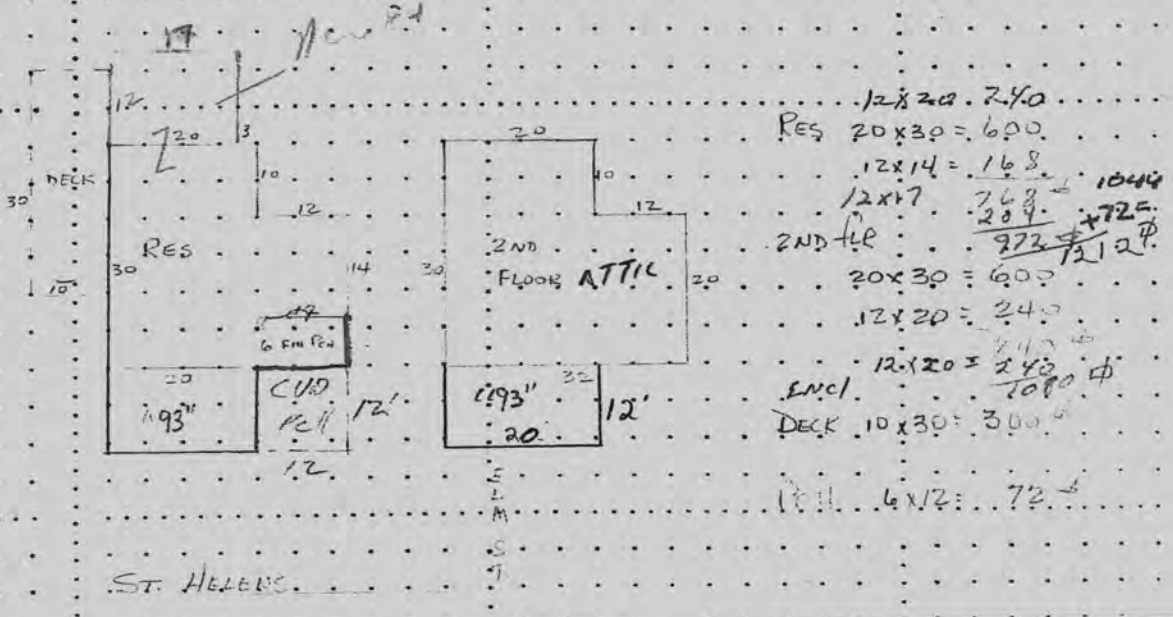 17
New
12
20
3
DECK
30
10
12
RES
30
14
10
6
20
"93"
CVD
PCH
12'
12
20
10
12
2ND
FLOOR ATTIC
30
20
32
"93"
20
12'
ELM ST
ST. HELENS
12 x 20 . 240
RES 20 x 30 = 600
12 x 14 = 168
12 x 17 768
204
972
1044
+72=
1212
2ND FLR
20 x 30 = 600
12 x 20 = 240
12 x 20 = 240
1080
ENCL
DECK 10 x 30 = 300
6 x 12 = 72